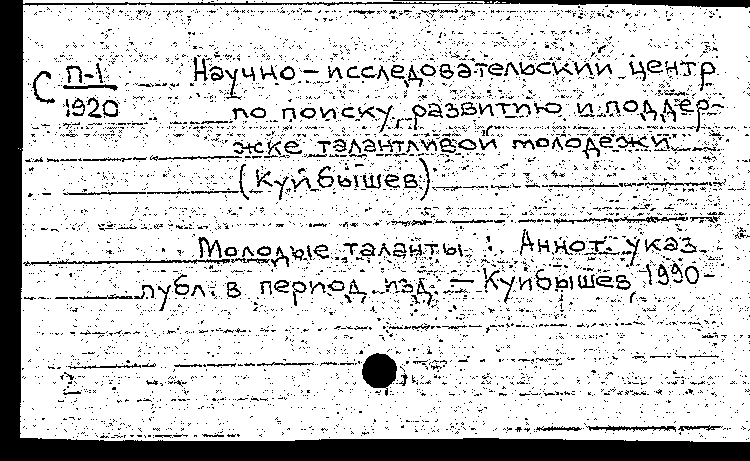 С П-1
1920
Научно-исследовательский центр
по поиску, развитию и поддер-
жке талантливой молодежи
(Куйбышев)
Молодые таланты : Аннот. указ.
публ. в период. изд. — Куйбышев, 1990-